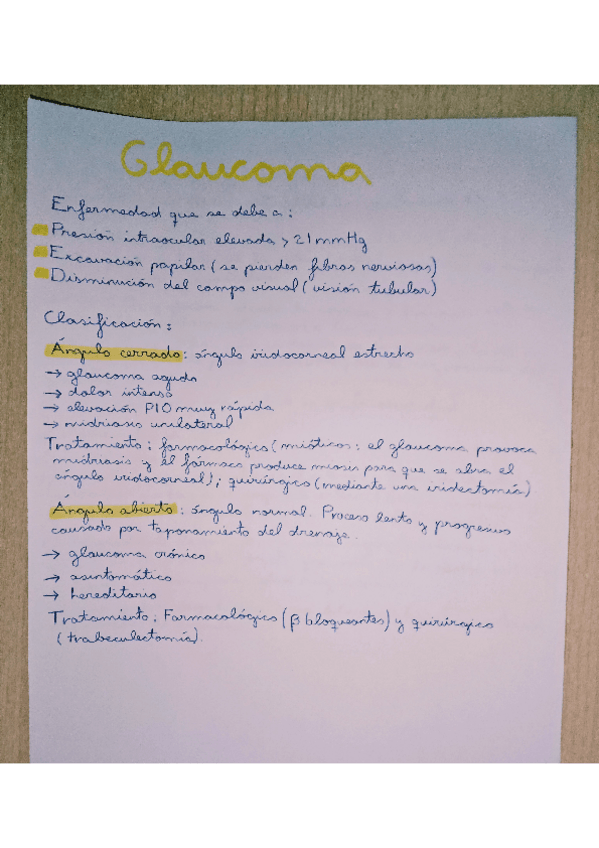 Glaucoma
Enfermedad que se debe a:
Presión intraocular elevada > 21 mmHg
Excavación papilar (se pierden fibras nerviosas)
Disminución del campo visual (visión tubular)
Clasificación:
Ángulo cerrado: ángulo iridocorneal estrecho
→ glaucoma agudo
→ dolor intenso
→ elevación PIO muy rápida
→ midriasis unilateral
Tratamiento: farmacológico (mióticos: el glaucoma provoca
midriasis y el fármaco produce miosis para que se abra el
ángulo iridocorneal); quirúrgico (mediante una iridectomía)
Ángulo abierto: ángulo normal. Proceso lento y progresivo
causado por taponamiento del drenaje.
→ glaucoma crónico
→ asintomático
→ hereditario
Tratamiento: Farmacológico (β bloqueantes) y quirúrgico
(trabeculectomía).